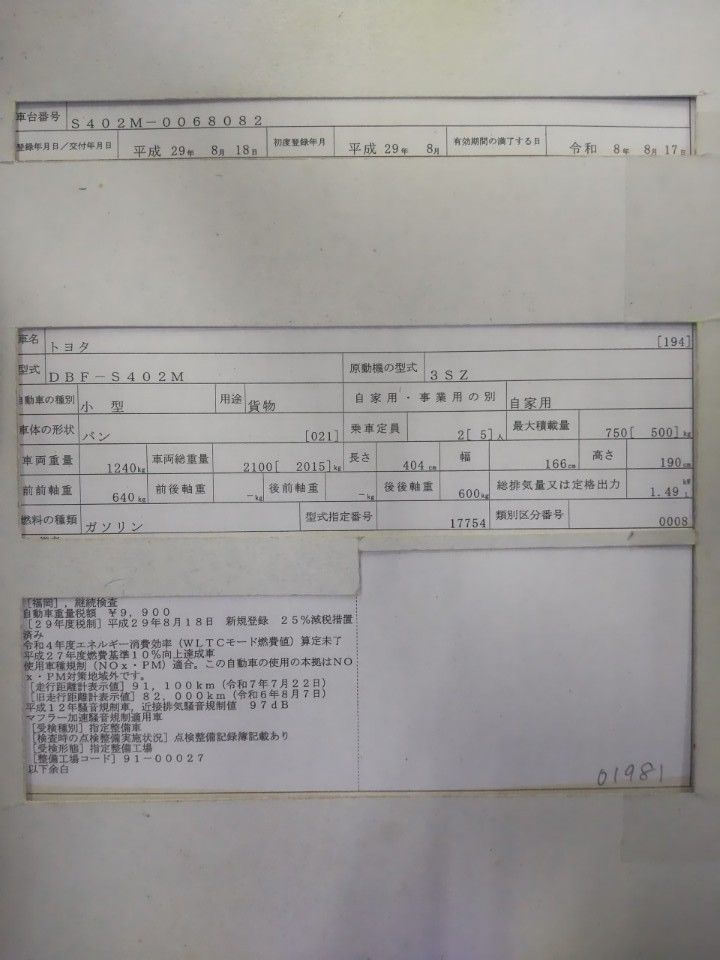 車台番号 S402M-0068082
登録年月日/交付年月日 平成 29年 8月 18日 初度登録年月 平成 29年 8月 有効期間の満了する日 令和 8年 8月 17日
車名 トヨタ [194]
型式 DBF-S402M 原動機の型式 3SZ
自動車の種別 小 型 用途 貨物 自家用・事業用の別 自家用
車体の形状 バン [021] 乗車定員 2[ 5]人 最大積載量 750[ 500]kg
車両重量 1240kg 車両総重量 2100[ 2015]kg 長さ 404cm 幅 166cm 高さ 190cm
前前軸重 640kg 前後軸重 -kg 後前軸重 -kg 後後軸重 600kg 総排気量又は定格出力 1.49 kW L
燃料の種類 ガソリン 型式指定番号 17754 類別区分番号 0008
[福岡],継続検査
自動車重量税額 ¥9,900
[29年度税制]平成29年8月18日 新規登録 25%減税措置
済み
令和4年度エネルギー消費効率(WLTCモード燃費値)算定未了
平成27年度燃費基準10%向上達成車
使用車種規制(NOx・PM)適合。この自動車の使用の本拠はNO
x・PM対策地域外です。
[走行距離計表示値]91,100km(令和7年7月22日)
[旧走行距離計表示値]82,000km(令和6年8月7日)
平成12年騒音規制車,近接排気騒音規制値 97dB
マフラー加速騒音規制適用車
[受検種別]指定整備車
[検査時の点検整備実施状況]点検整備記録簿記載あり
[受検形態]指定整備工場
[整備工場コード]91-00027
以下余白
01981